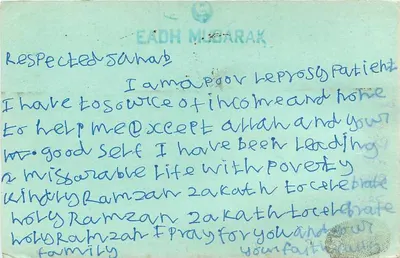 EADH MUBARAK
Respected Janab
I am a poor leprosy patient
I have to source of income and none
to help me except allah and your
good self I have been leading
a missarable life with poverty
kindly Ramzan zakath to celebrate
holy Ramzan zakath to celebrate
holy Ramzan I pray for you and your
family yours faithfully